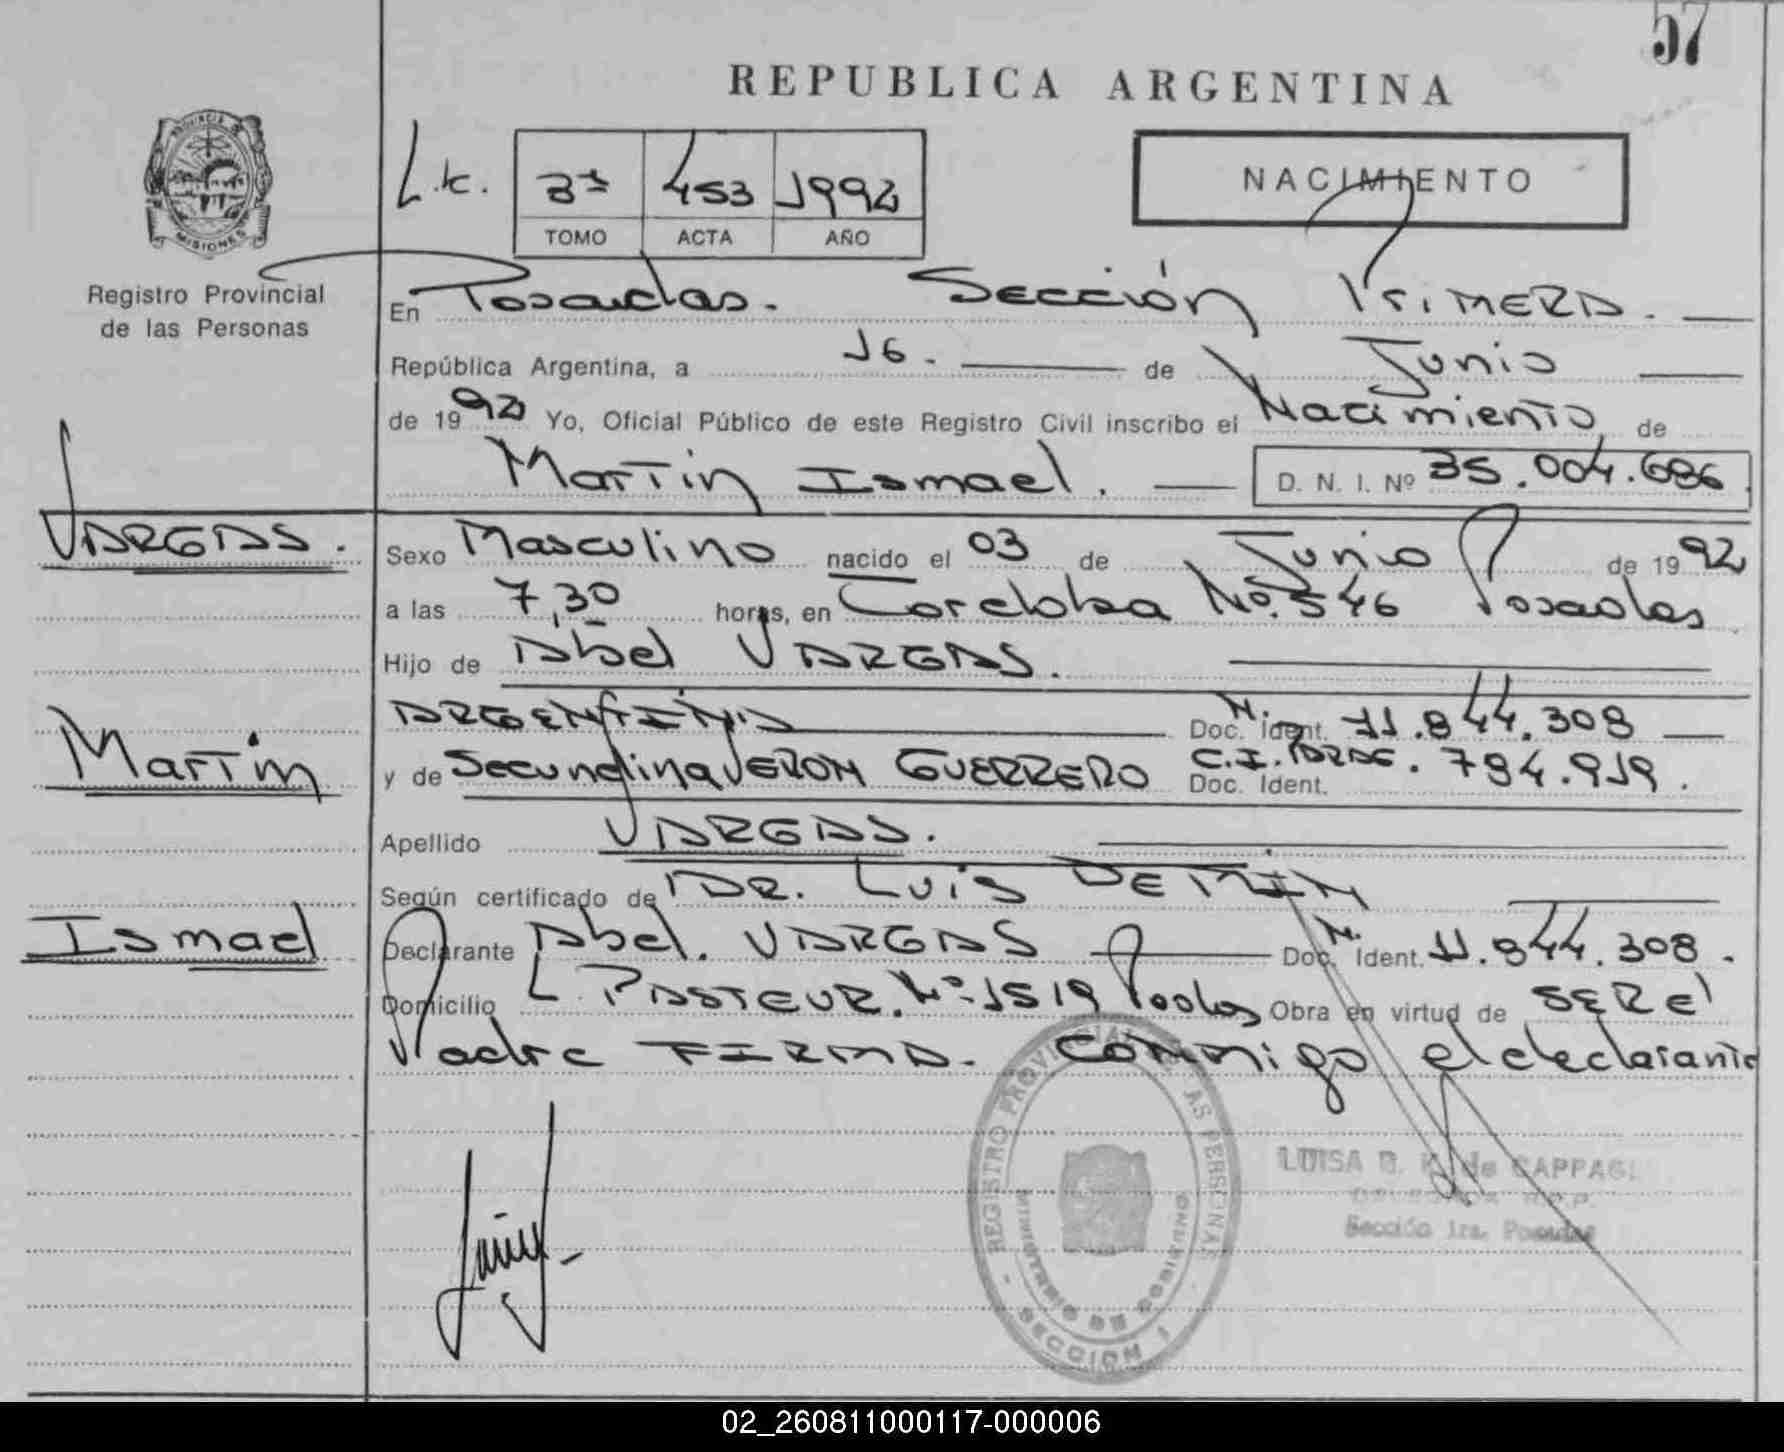 57
REPUBLICA ARGENTINA
PROVINCIA DE
MISIONES
Registro Provincial
de las Personas
3ª 453 1992
TOMO ACTA AÑO
NACIMIENTO
En Posadas. Sección Primera.
República Argentina, a 16. de Junio
de 1992 Yo, Oficial Público de este Registro Civil inscribo el Nacimiento de
Martin Ismael. D. N. I. Nº 35.004.686
VARGAS.
Sexo Masculino nacido el 03 de Junio de 1992
a las 7,30 horas, en Cordoba No. 546 Posadas
Hijo de Abel VARGAS.
ARGENTINA Doc. Ident. 11.844.308
Martin
y de Secundina VERON GUERRERO C.I. Doc. Ident. 794.919.
Apellido VARGAS.
Según certificado de DR. Luis
Ismael
Declarante Abel. VARGAS Doc. Ident. 11.844.308.
Domicilio L. PASTEUR. Nº 1519 Pdas Obra en virtud de SER el
Padre FIRMA. conmigo el declarante
REGISTRO PROVINCIAL DE LAS PERSONAS
MINISTERIO DE GOBIERNO
SECCION 1
LUISA B. K. de CAPPAGLI
Sección 1ra. Posadas
02_260811000117-000006